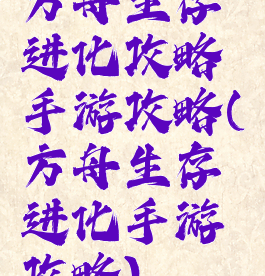 方舟生存
进化攻略
手游攻略(
方舟生存
进化手游
攻略)